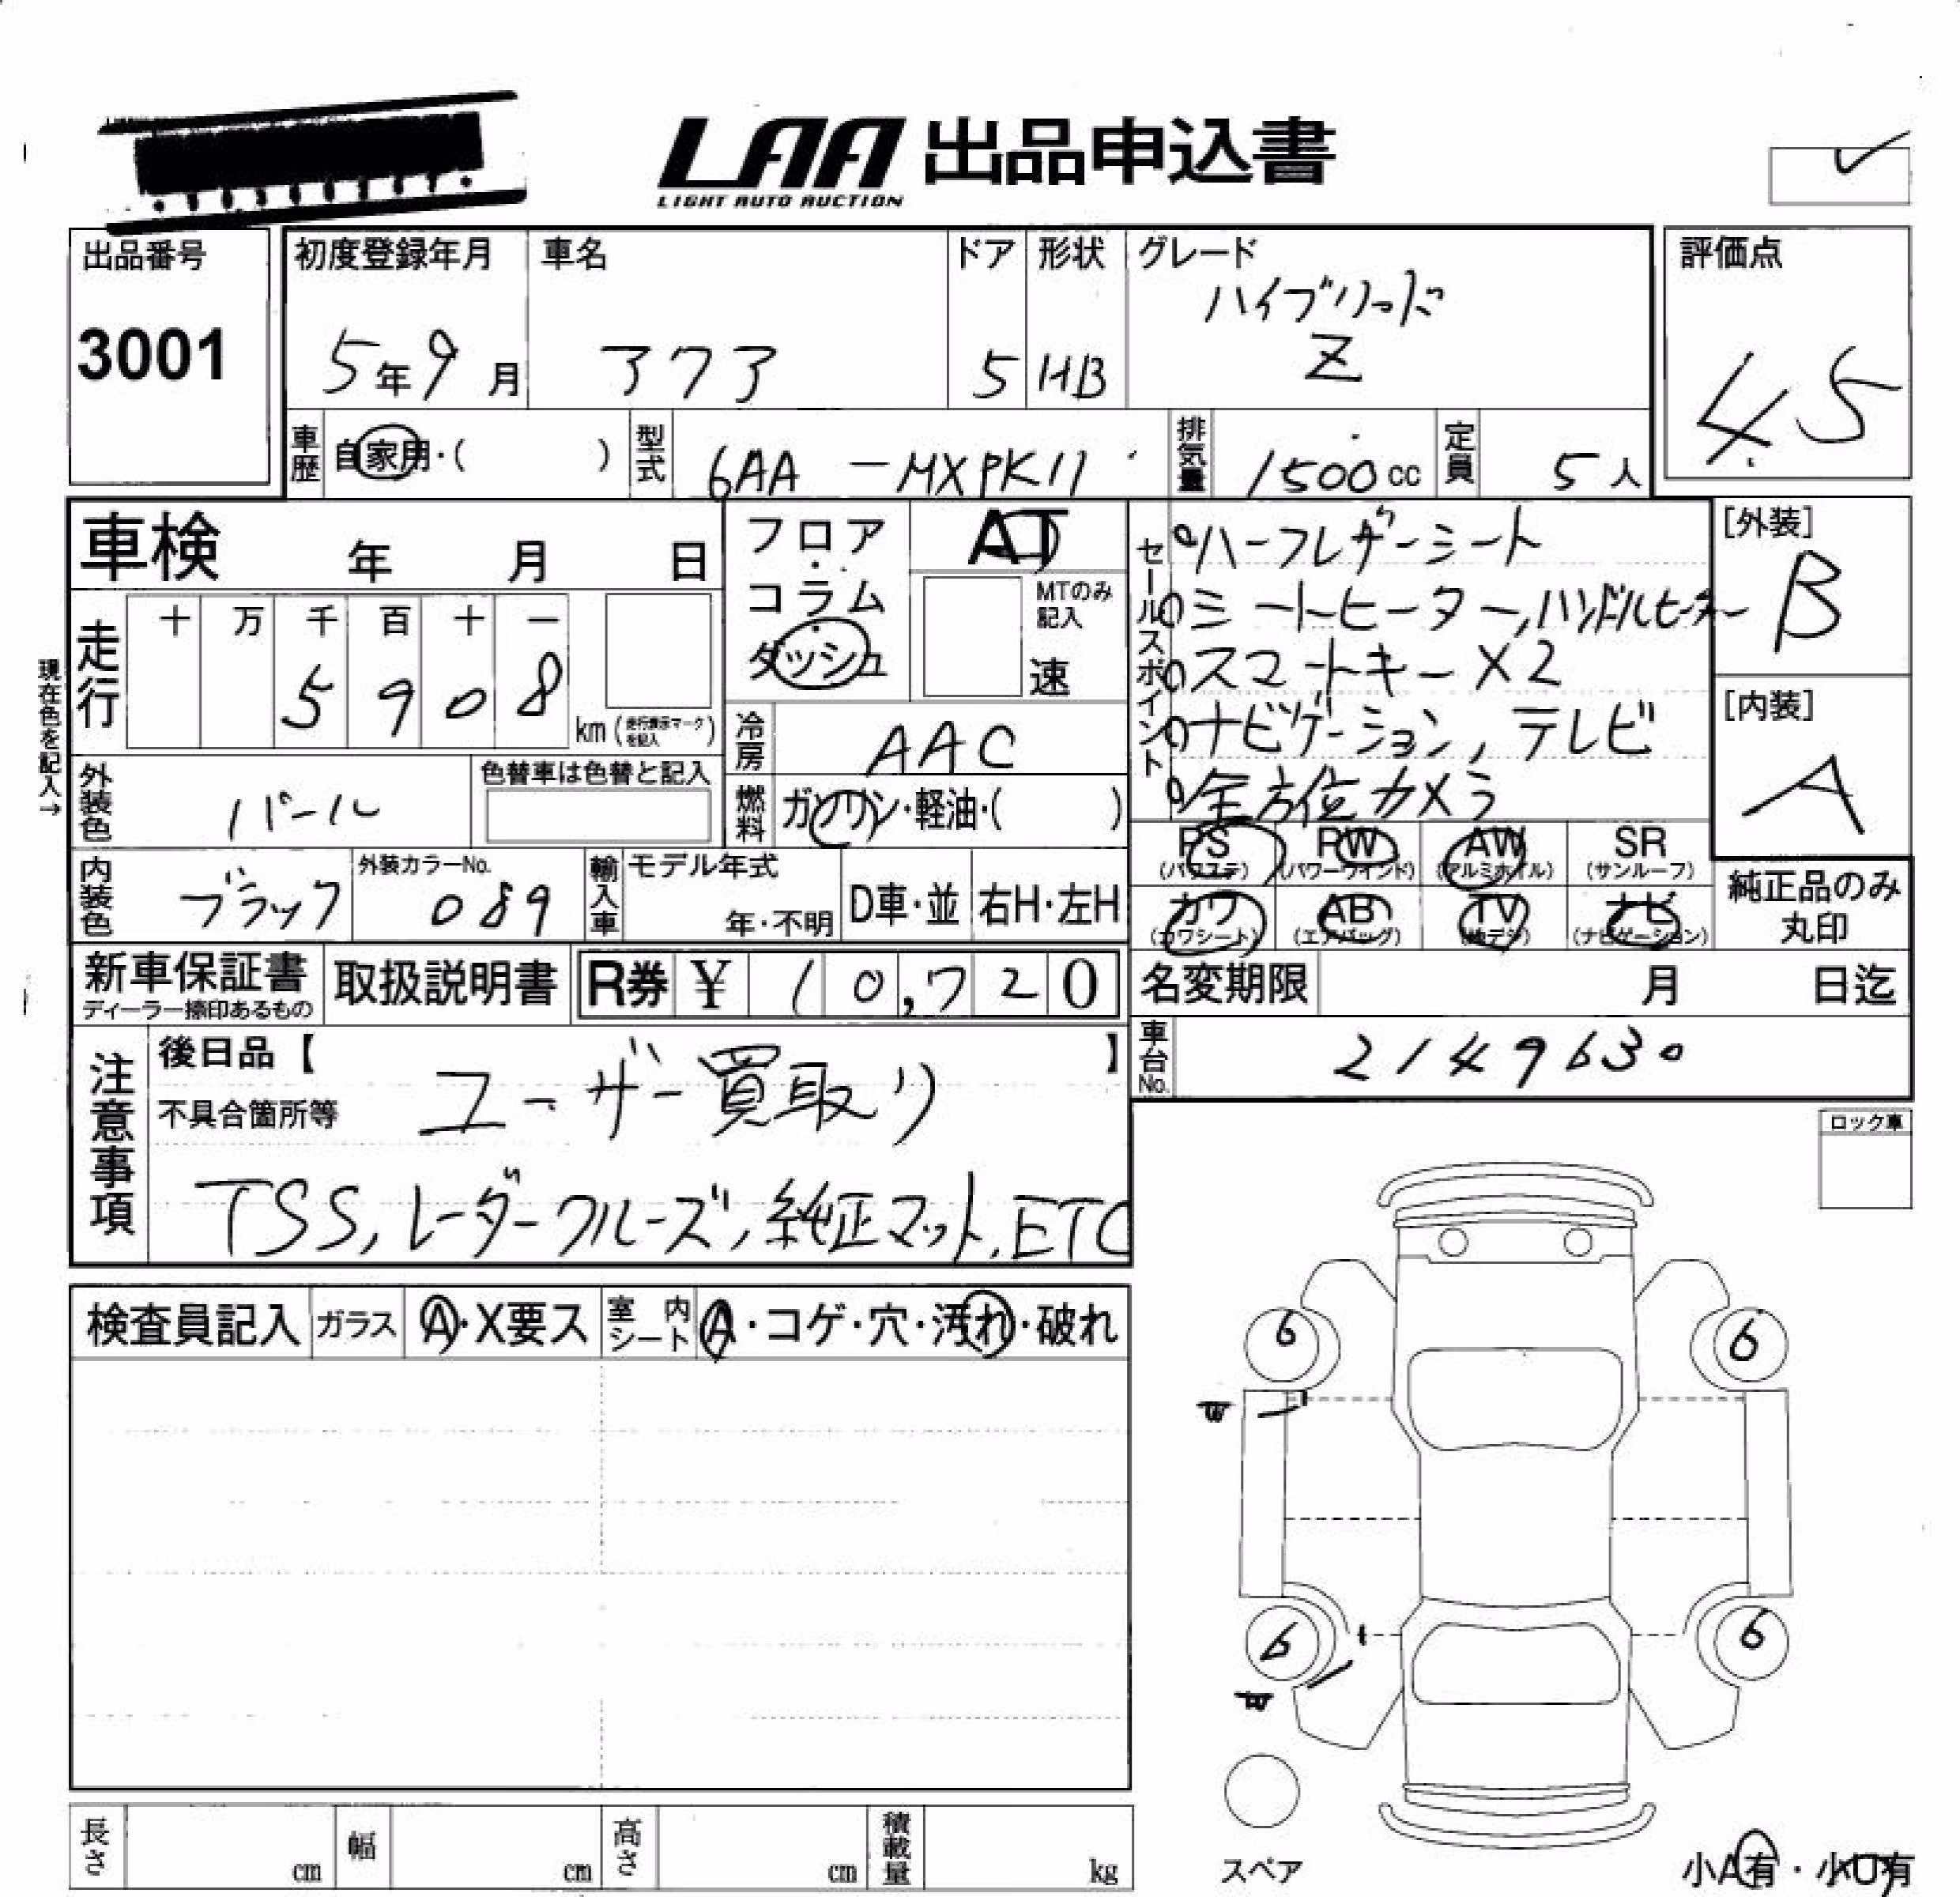 LAA 出品申込書
LIGHT AUTO AUCTION
出品番号
3001
初度登録年月
5年9月
車名
アクア
ドア
5
形状
HB
グレード
ハイブリッド
Z
評価点
4.5
車歴 自家用・( )
型式 6AA -MXPK11
排気量 1500cc
定員 5人
車検 年 月 日
フロア
コラム
ダッシュ
AT
MTのみ
記入
速
走行
十 万 千 百 十 一
5 9 0 8
km(走行表示マークを記入)
現在色を記入→
冷房 AAC
燃料 ガソリン・軽油・( )
外装色 パール
色替車は色替と記入
内装色 ブラック
外装カラーNo.
089
輸入車
モデル年式
年・不明
D車・並
右H・左H
セールスポイント
ハーフレザーシート
シートヒーター,ハンドルヒーター
スマートキー×2
ナビゲーション,テレビ
全方位カメラ
[外装]
B
[内装]
A
PS
(パワステ)
PW
(パワーウインド)
AW
(アルミホイル)
SR
(サンルーフ)
カワ
(カワシート)
AB
(エアバッグ)
TV
(地デジ)
ナビ
(ナビゲーション)
純正品のみ
丸印
新車保証書
ディーラー捺印あるもの
取扱説明書
R券 ¥ 10,720
名変期限 月 日迄
車台No. 2149630
注意事項
後日品【 】
不具合箇所等
ユーザー買取り
TSS,レーダークルーズ,純正マット,ETC
ロック車
検査員記入
ガラス A・X要ス
室内シート A・コゲ・穴・汚れ・破れ
6
6
6
6
スペア
長さ cm
幅 cm
高さ cm
積載量 kg
小A有・小U有